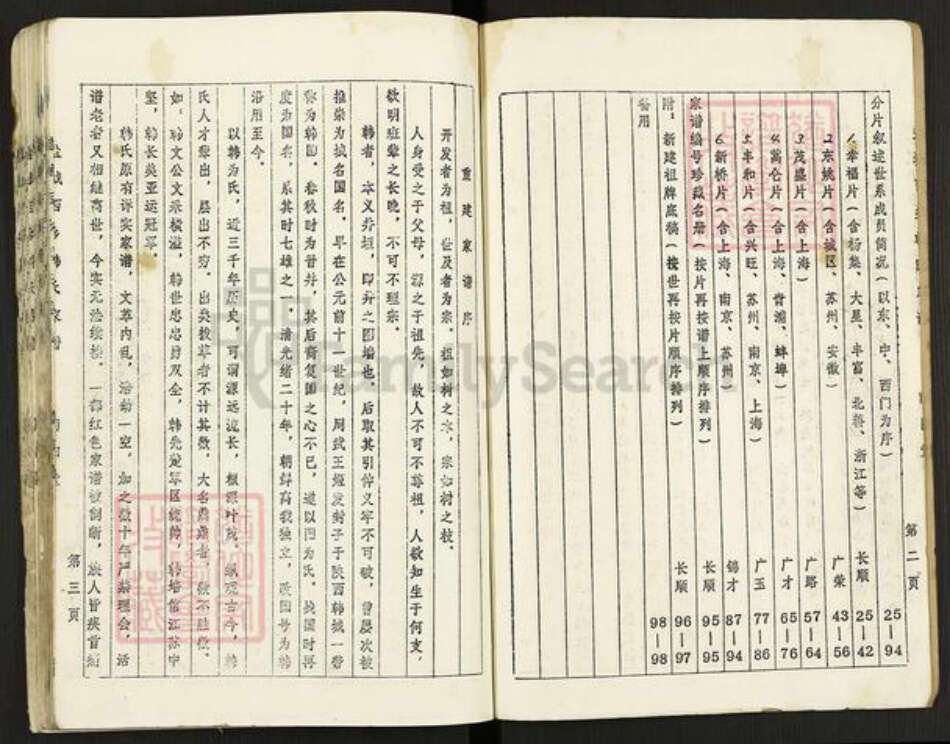 第二页
分片叙述世系成员简况(以东、中、西门为序) 25—94
1.幸福片(含杨集、大星、丰富、北蒋、浙江等) 长顺 25—42
2.东姚片(含城区、苏州、安徽) 广荣 43—56
3.茂盛片(含上海) 广路 57—64
4.万仓片(含上海、青浦、蚌埠) 广才 65—76
5.丰和片(含兴旺、苏州、南京、上海) 广玉 77—86
6.新桥片(含上海、南京、苏州) 锦才 87—94
家谱编号珍藏名册(按片再按谱上顺序排列) 长顺 95—95
附:新建祖牌底稿(按世再按片顺序排列) 长顺 96—97
备用 98—98
重建家谱序
开发者为祖,世及者为宗。祖如树之本,宗如树之枝。
人身受之于父母,源之于祖先,故人不可不尊祖,人欲知生于何支,
欲明班辈之长晚,不可不理宗。
韩者,本义井垣,即井之围墙也。后取其引伸义牢不可破,曾屡次被
推崇为域名国名。早在公元前十一世纪,周武王姬发封子于陕西韩城一带
称为韩国。春秋时为晋并,其后裔复国之心不已,遂以国为氏。战国时再
度为国名,系其时七雄之一。清光绪二十年,朝鲜离我独立,改国号为韩
沿用至今。
以韩为氏,近三千年历史,可谓源远流长,根深叶茂。纵观古今,韩
氏人才辈出,层出不穷。出类拔萃者不计其数,大名鼎鼎者,数不胜数。
如:韩文公文采横溢,韩世忠忠勇双全,韩先楚军区统帅,韩培信江苏中
坚,韩长美亚运冠军。
韩氏原有详实家谱,文革内乱,活动一空。加之数十年严禁理会,话
谱老者又相继离世,今实无法续接。一部红色家谱被创新,族人皆疾首痛
第三页